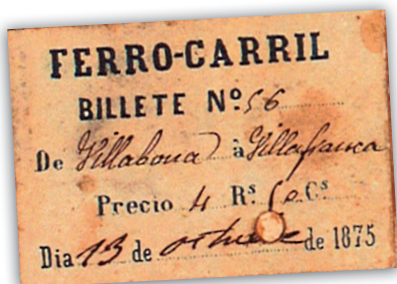 FERRO-CARRIL
BILLETE Nº 56
De Villabona à Villafranca
Precio 4 Rˢ 50 Cˢ
Dia 13 de octubre de 1875